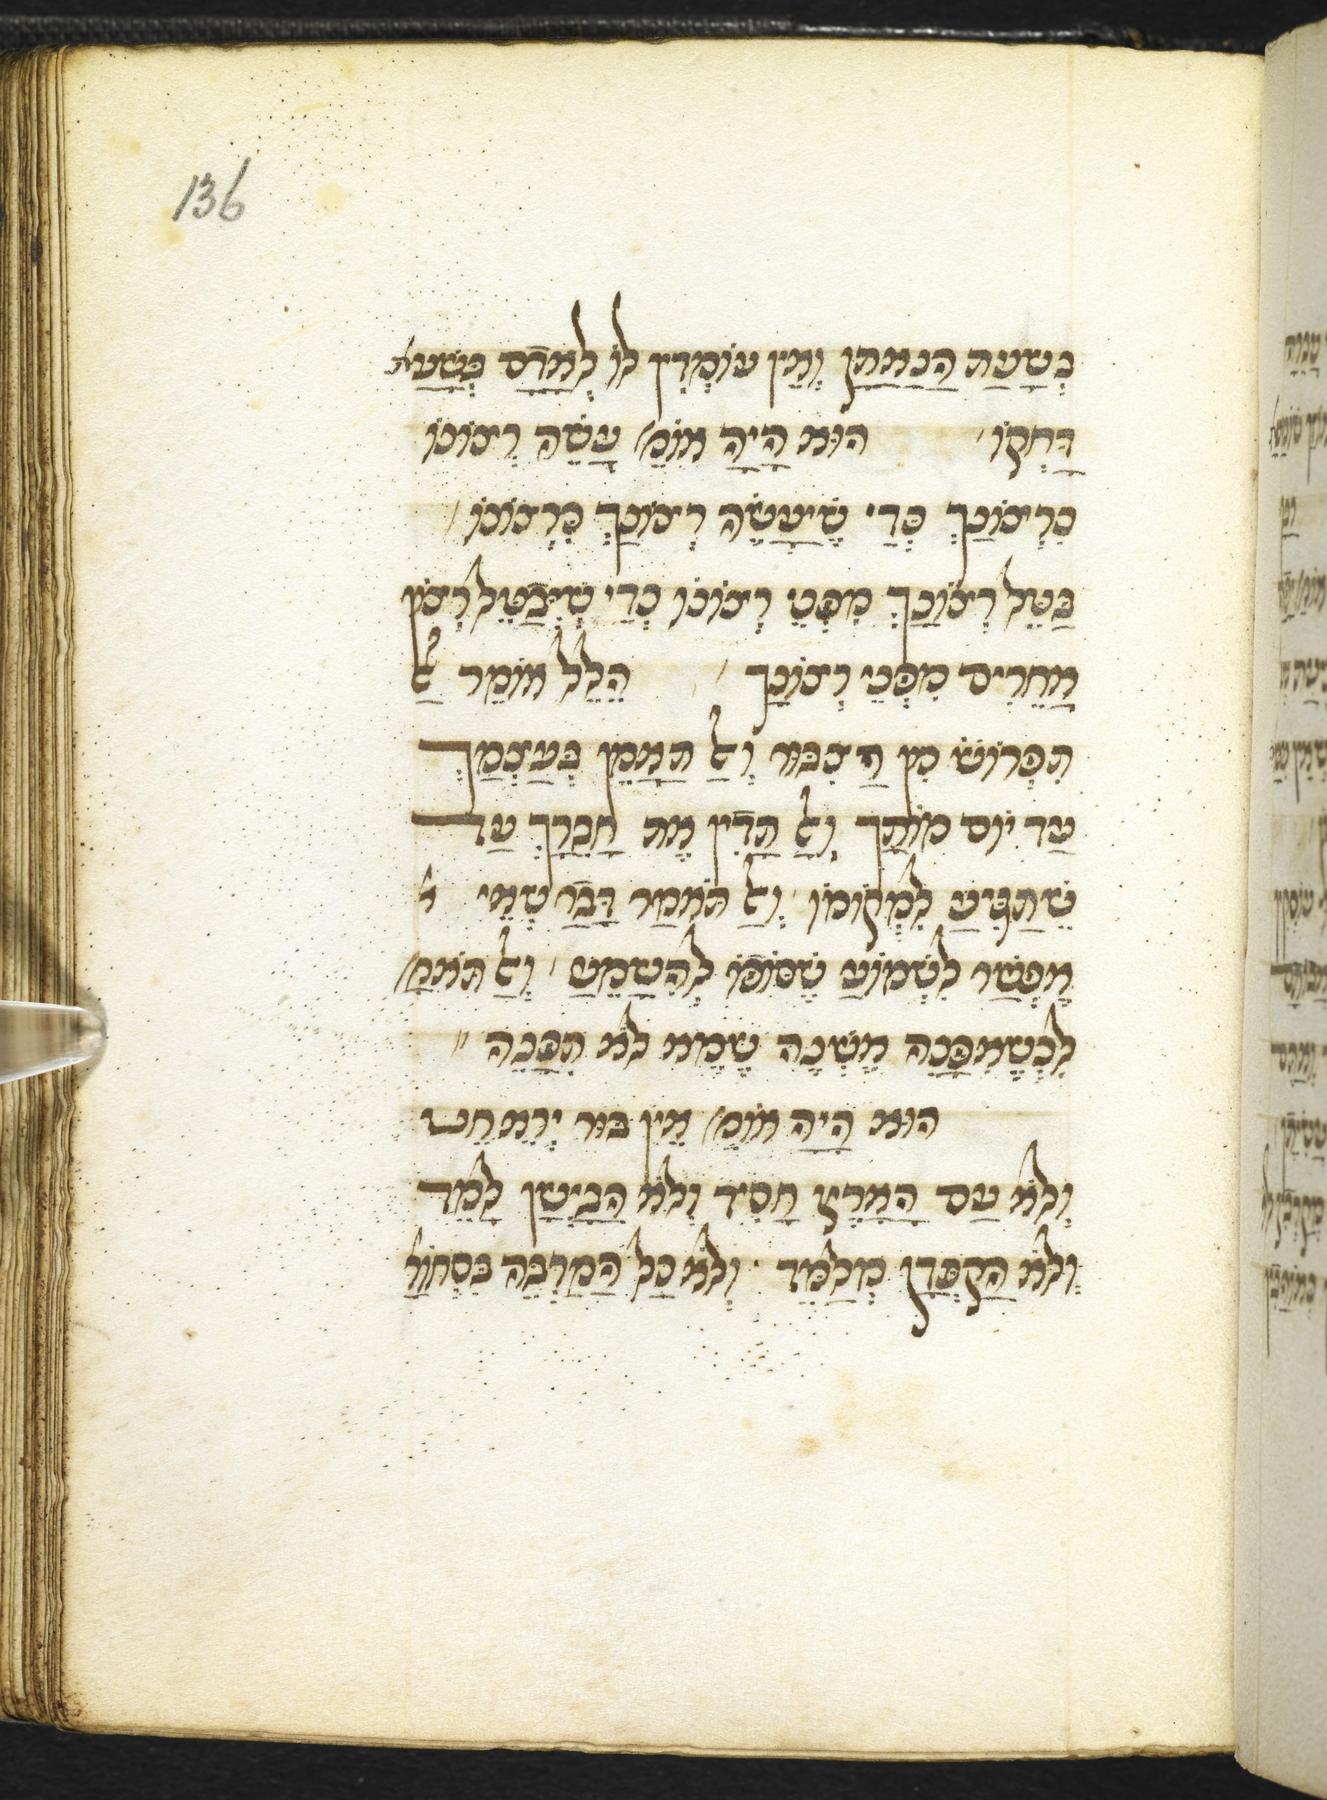 136
בְּשָׁעַת הֲנָאָתָן וְאֵין עוֹמְדִין לוֹ לְאָדָם בְּשָׁעַת
דָּחְקוֹ׳ הוּא הָיָה אוֹמֵ׳ עֲשֵׂה רְצוֹנוֹ
כִּרְצוֹנַךְ כְּדֵי שֶׁיַּעֲשֶׂה רְצוֹנַךְ כִּרְצוֹנוֹ׳
בַּטֵּל רְצוֹנַךְ מִפְּנֵי רְצוֹנוֹ כְּדֵי שֶׁיְּבַטֵּל רְצוֹן
אֲחֵרִים מִפְּנֵי רְצוֹנַךְ׳ הִלֵּל אוֹמֵר אַל
תִּפְרוֹשׁ מִן הַצִּבּוּר וְאַל תַּאֲמֵין בְּעַצְמַךְ
עַד יוֹם מוֹתַךְ וְאַל תָּדִין אֶת חֲבֵרַךְ עַד
שֶׁתַּגִּיעַ לִמְקוֹמוֹ׳ וְאַל תֹּאמַר דָּבָר שֶׁאֵי
אֶפְשַׁר לִשְׁמוֹעַ שֶׁסּוֹפוֹ לְהִשָּׁמֵעַ׳ וְאַל תֹּאמַ׳
לִכְשֶׁאִפָּנֶה אֶשְׁנֶה שֶׁמָּא לֹא תִפָּנֶה׳׳
הוּא הָיָה אוֹמֵ׳ אֵין בּוּר יְרֵא חֵט
וְלֹא עַם הָאָרֶץ חָסִיד וְלֹא הַבַּיְשָׁן לָמֵד
וְלֹא הַקַּפְּדָן מְלַמֵּד · וְלֹא כָל הַמַּרְבֶּה בִּסְחוֹרָ